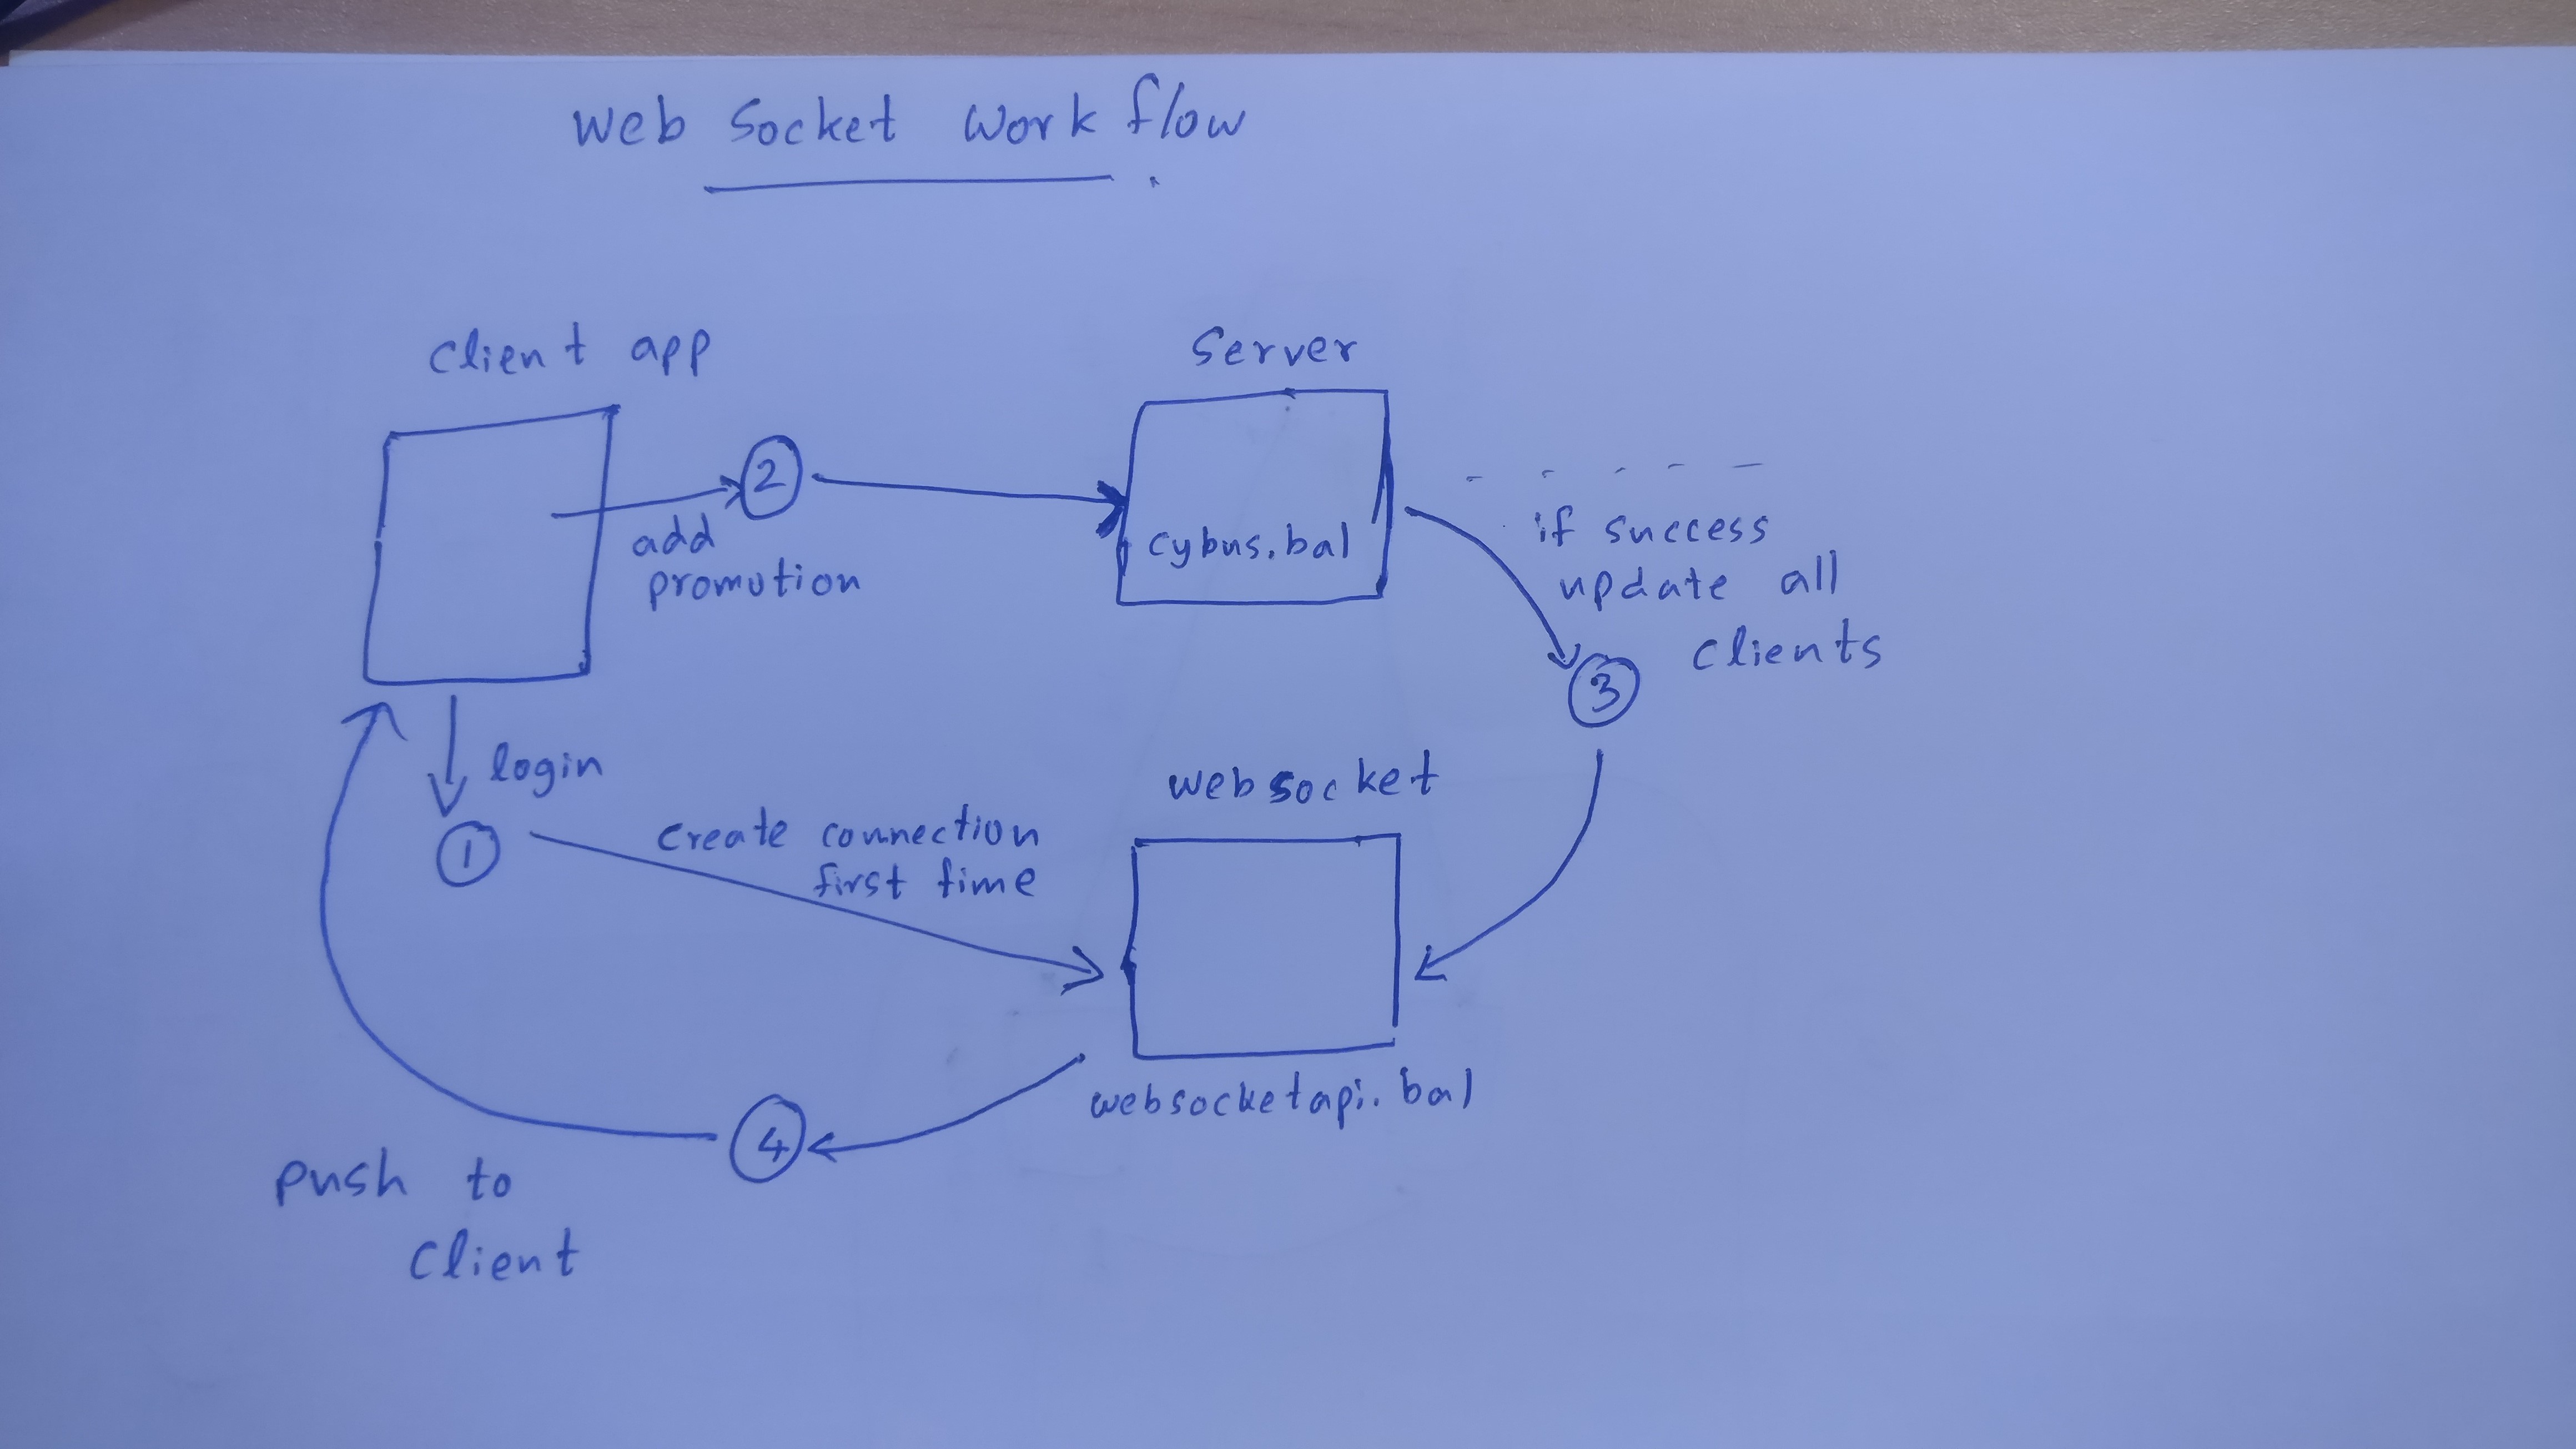 Web Socket Work flow
Client app
Server
2
add
promotion
cybus.bal
if success
update all
clients
3
login
1
create connection
first time
web socket
websocketapi.bal
4
push to
client